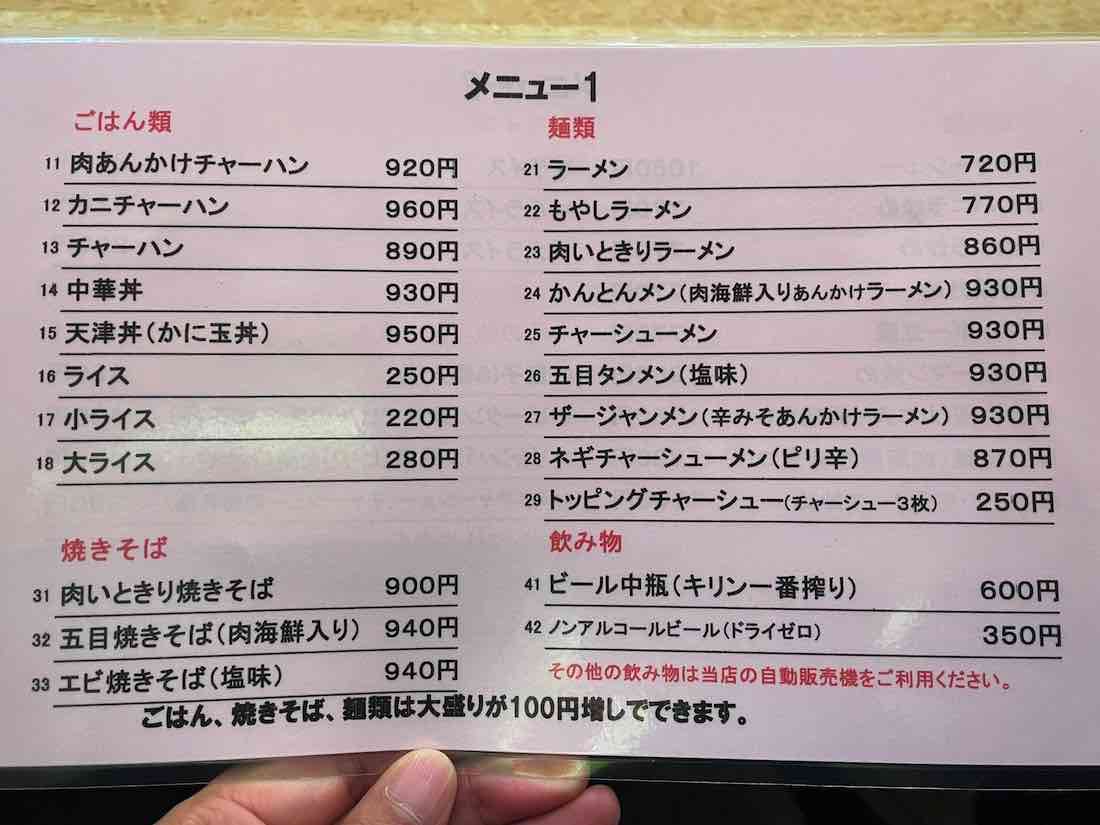 メニュー1
ごはん類
11 肉あんかけチャーハン 920円
12 カニチャーハン 960円
13 チャーハン 890円
14 中華丼 930円
15 天津丼(かに玉丼) 950円
16 ライス 250円
17 小ライス 220円
18 大ライス 280円
焼きそば
31 肉いときり焼きそば 900円
32 五目焼きそば(肉海鮮入り) 940円
33 エビ焼きそば(塩味) 940円
麺類
21 ラーメン 720円
22 もやしラーメン 770円
23 肉いときりラーメン 860円
24 かんとんメン(肉海鮮入りあんかけラーメン) 930円
25 チャーシューメン 930円
26 五目タンメン(塩味) 930円
27 ザージャンメン(辛みそあんかけラーメン) 930円
28 ネギチャーシューメン(ピリ辛) 870円
29 トッピングチャーシュー(チャーシュー3枚) 250円
飲み物
41 ビール中瓶(キリン一番搾り) 600円
42 ノンアルコールビール(ドライゼロ) 350円
その他の飲み物は当店の自動販売機をご利用ください。
ごはん、焼きそば、麺類は大盛りが100円増しでできます。